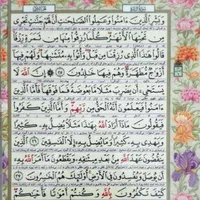 وَبَشِّرِ الَّذِينَ ءَامَنُوا وَعَمِلُوا الصَّٰلِحَٰتِ أَنَّ لَهُمْ جَنَّٰتٍ تَجْرِي
مِنْ تَحْتِهَا الْأَنْهَٰرُ كُلَّمَا رُزِقُوا مِنْهَا مِنْ ثَمَرَةٍ رِزْقًا
قَالُوا هَٰذَا الَّذِي رُزِقْنَا مِنْ قَبْلُ وَأُتُوا بِهِ مُتَشَٰبِهًا وَلَهُمْ فِيهَا
أَزْوَٰجٌ مُطَهَّرَةٌ وَهُمْ فِيهَا خَٰلِدُونَ ٢٥ إِنَّ اللَّهَ لَا
يَسْتَحْيِي أَنْ يَضْرِبَ مَثَلًا مَا بَعُوضَةً فَمَا فَوْقَهَا فَأَمَّا الَّذِينَ
ءَامَنُوا فَيَعْلَمُونَ أَنَّهُ الْحَقُّ مِنْ رَبِّهِمْ وَأَمَّا الَّذِينَ كَفَرُوا
فَيَقُولُونَ مَاذَا أَرَادَ اللَّهُ بِهَٰذَا مَثَلًا يُضِلُّ بِهِ كَثِيرًا
وَيَهْدِي بِهِ كَثِيرًا وَمَا يُضِلُّ بِهِ إِلَّا الْفَٰسِقِينَ ٢٦ الَّذِينَ
يَنْقُضُونَ عَهْدَ اللَّهِ مِنْ بَعْدِ مِيثَٰقِهِ وَيَقْطَعُونَ مَا أَمَرَ اللَّهُ بِهِ
أَنْ يُوصَلَ وَيُفْسِدُونَ فِي الْأَرْضِ أُولَٰئِكَ هُمُ الْخَٰسِرُونَ ٢٧
كَيْفَ تَكْفُرُونَ بِاللَّهِ وَكُنْتُمْ أَمْوَٰتًا فَأَحْيَٰكُمْ